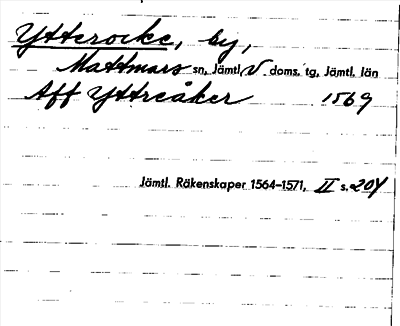 Ytterocke, by,
Mattmars sn, Jämtl. V doms. tg, Jämtl. län
Aff Yttreåker 1569
Jämtl. Räkenskaper 1564–1571, II s. 204